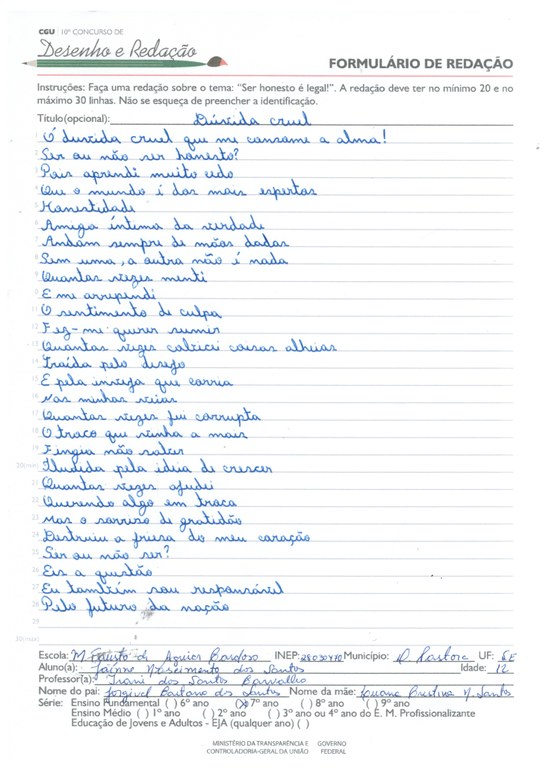 CGU | 10º CONCURSO DE
Desenho e Redação
FORMULÁRIO DE REDAÇÃO
Instruções: Faça uma redação sobre o tema: "Ser honesto é legal!". A redação deve ter no mínimo 20 e no
máximo 30 linhas. Não se esqueça de preencher a identificação.
Título(opcional): Dúvida cruel
1 Ó duvida cruel que me consome a alma!
2 Ser ou não ser honesto?
3 Pois aprendi muito cedo
4 Que o mundo é dos mais espertos
5 Honestidade
6 Amiga íntima da verdade
7 Andam sempre de mãos dadas
8 Sem uma, a outra não é nada
9 Quantas vezes menti
10 E me arrependi
11 O sentimento de culpa
12 Fez-me querer sumir
13 Quantas vezes cobicei coisas alheias
14 Traída pelo desejo
15 E pela inveja que corria
16 Nas minhas veias
17 Quantas vezes fui corrupta
18 O troco que vinha a mais
19 Fingia não saber
20(min) Iludida pela ideia de crescer
21 Quantas vezes ajudei
22 Querendo algo em troca
23 Mas o sorriso de gratidão
24 Destruiu a frieza do meu coração
25 Ser ou não ser?
26 Eis a questão
27 Eu também sou responsável
28 Pelo futuro da nação
29
30(max)
Escola: M. Fausto de Aguiar Cardoso INEP: 28030410 Município: D. Pastora UF: SE
Aluno(a): Nascimento dos Santos Idade: 12
Professor(a): Irani dos Santos Carvalho
Nome do pai: Jorgival Caetano dos Santos Nome da mãe: Cristina N. Santos
Série: Ensino Fundamental ( ) 6º ano (x) 7º ano ( ) 8º ano ( ) 9º ano
Ensino Médio ( ) 1º ano ( ) 2º ano ( ) 3º ano ou 4º ano do E. M. Profissionalizante
Educação de Jovens e Adultos - EJA (qualquer ano) ( )
MINISTÉRIO DA TRANSPARÊNCIA E GOVERNO
CONTROLADORIA-GERAL DA UNIÃO FEDERAL